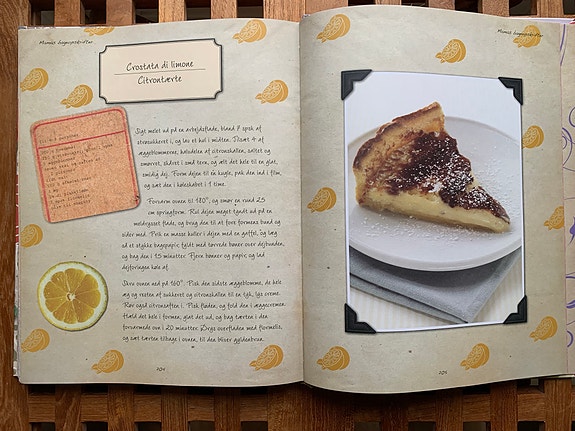 Mamas bageopskrifter
Crostata di limone
Citrontærte
Sigt melet ud på en arbejdsflade, bland ? spsk af
strøsukkeret i, og lav et hul i midten. Tilsæt 4 af
æggeblommerne, halvdelen af citronskallen, saltet og
smørret, skåret i små tern, og ælt det hele til en glat,
smidig dej. Form dejen til en kugle, pak den ind i film,
og sæt den i køleskabet i 1 time.
Forvarm ovnen til 180°, og smør en rund 25
cm springform. Rul dejen meget tyndt ud på en
meldrysset flade, og brug den til at fore formens bund og
sider med. Prik en masse huller i dejen med en gaffel, og læg
så et stykke bagepapir fyldt med tørrede bønner over dejbunden,
og bag den i 15 minutter. Fjern bønner og papir, og lad
dejforingen køle af.
Skru ovnen ned på 160°. Pisk den sidste æggeblomme, de hele
æg og resten af sukkeret og citronskallen til en tyk, lys creme.
Rør også citronsaften i. Pisk fløden, og fold den i æggecremen.
Hæld det hele i formen, glat det ud, og bag tærten i den
forvarmede ovn i 20 minutter. Drys overfladen med flormelis,
og sæt tærten tilbage i ovnen, til den bliver gyldenbrun.
204
Mamas bageopskrifter
205